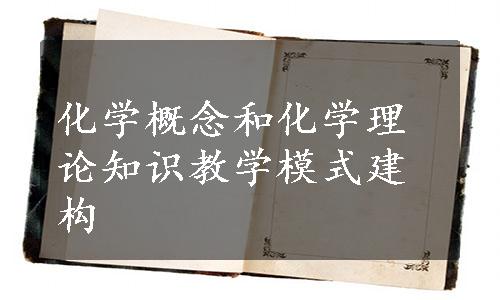 化学概念和化学理
论知识教学模式建
构